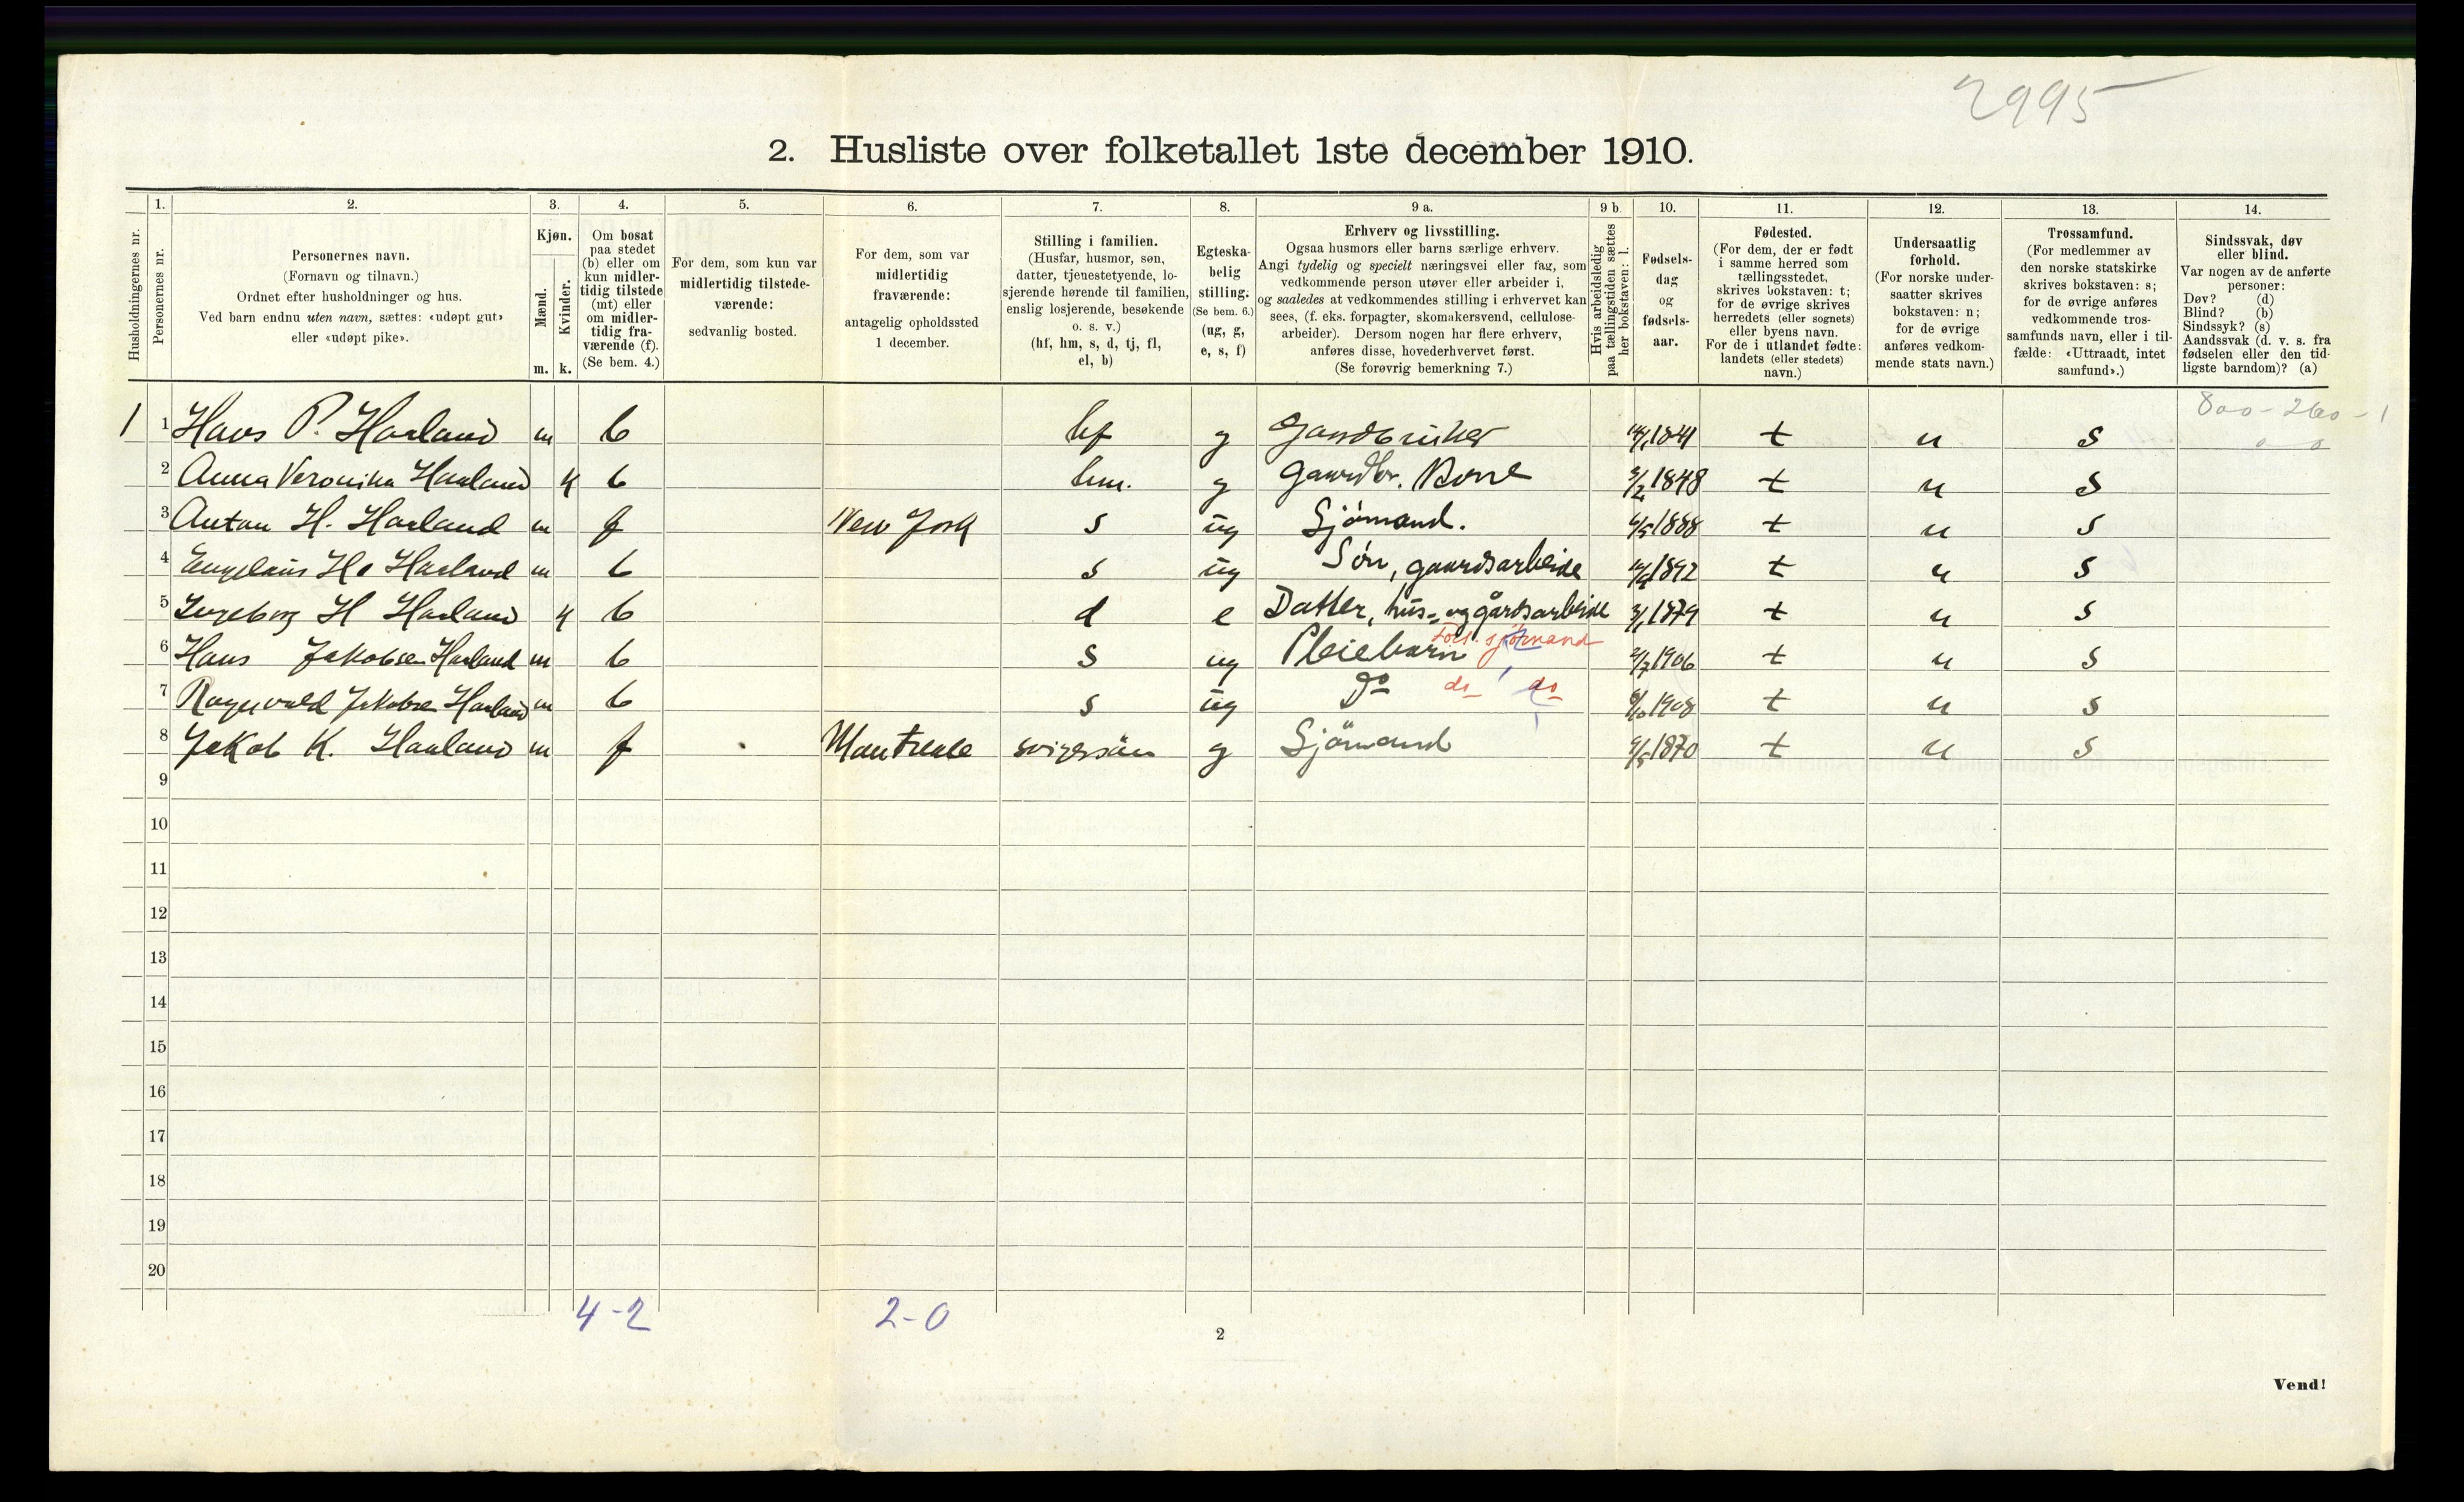 2995
2. Husliste over folketallet 1ste december 1910.
Husholdningernes nr.
1.
Personernes nr.
2.
Personernes navn.
(Fornavn og tilnavn.)
Ordnet efter husholdninger og hus.
Ved barn endnu uten navn, sættes: «udøpt gut»
eller «udøpt pike».
3.
Kjøn.
Mænd.
Kvinder.
m. k.
4.
Om bosat
paa stedet
(b) eller om
kun midler-
tidig tilstede
(mt) eller
om midler-
tidig fra-
værende (f).
(Se bem. 4.)
5.
For dem, som kun var
midlertidig tilstede-
værende:
sedvanlig bosted.
6.
For dem, som var
midlertidig
fraværende:
antagelig opholdssted
1 december.
7.
Stilling i familien.
(Husfar, husmor, søn,
datter, tjenestetyende, lo-
sjerende hørende til familien,
enslig losjerende, besøkende
o. s. v.)
(hf, hm, s, d, tj, fl,
el, b)
8.
Egteska-
belig
stilling.
(Se bem. 6.)
(ug, g,
e, s, f)
9 a.
Erhverv og livsstilling.
Ogsaa husmors eller barns særlige erhverv.
Angi tydelig og specielt næringsvei eller fag, som
vedkommende person utøver eller arbeider i,
og saaledes at vedkommendes stilling i erhvervet kan
sees, (f. eks. forpagter, skomakersvend, cellulose-
arbeider). Dersom nogen har flere erhverv,
anføres disse, hovederhvervet først.
(Se forøvrig bemerkning 7.)
9 b.
Hvis arbeidsledig
paa tællingstiden sættes
her bokstaven: l.
10.
Fødsels-
dag
og
fødsels-
aar.
11.
Fødested.
(For dem, der er født
i samme herred som
tællingsstedet,
skrives bokstaven: t;
for de øvrige skrives
herredets (eller sognets)
eller byens navn.
For de i utlandet fødte:
landets (eller stedets)
navn.)
12.
Undersaatlig
forhold.
(For norske under-
saatter skrives
bokstaven: n;
for de øvrige
anføres vedkom-
mende stats navn.)
13.
Trossamfund.
(For medlemmer av
den norske statskirke
skrives bokstaven: s;
for de øvrige anføres
vedkommende tros-
samfunds navn, eller i til-
fælde: «Uttraadt, intet
samfund».)
14.
Sindssvak, døv
eller blind.
Var nogen av de anførte
personer:
Døv? (d)
Blind? (b)
Sindssyk? (s)
Aandssvak (d. v. s. fra
fødselen eller den tid-
ligste barndom)? (a)
800 - 260 - 1
1 1 Hans P. Haaland m b hf g Gaardbruker 1841 t n s
2 Anna Veronika Haaland k b hm. g Gaardbr. Kone 1848 t n s
3 Anton H. Haaland m f New York s ug Sjømand. 1888 t n s
4 H. Haaland m b s ug Søn, gaardsarbeide 1892 t n s
5 Ingeborg H Haaland k b d e Datter, hus- og gårdsarbeide 1879 t n s
6 Hans Jakobsen Haaland m b s ug Pleiebarn Fors. sjömand 1906 t n s
7 Ragnvald Jakobsen Haaland m b s ug Do do do 1908 t n s
8 Jakob K. Haaland m f Montreale svigersön g Sjömand 1870 t n s
9
10
11
12
13
14
15
16
17
18
19
20
4-2 2-0
2
Vend!